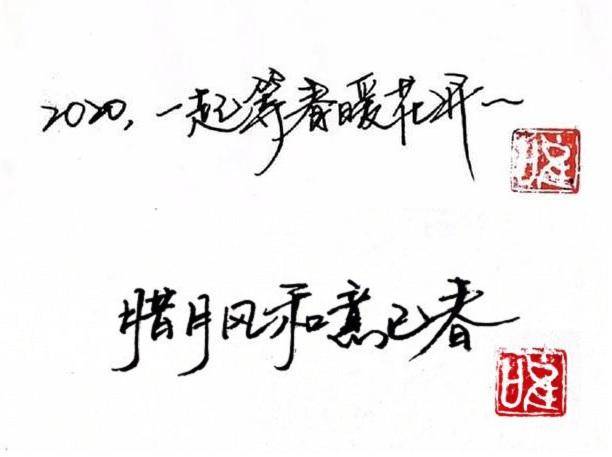 2020，一起等春暖花开～
腊月风和意已春